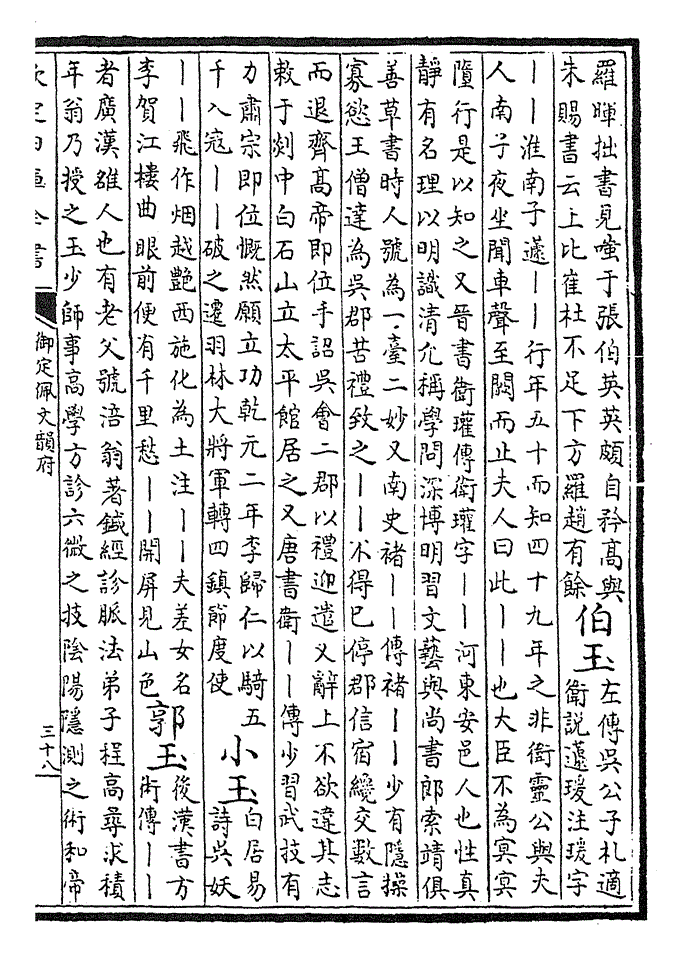 羅暉拙書見嗤于張伯英英頗自矜髙與
朱賜書云上比崔杜不足下方羅趙有餘
伯玉
左傳吳公子札適
衛説蘧瑗注瑗字
｜｜淮南子蘧｜｜行年五十而知四十九年之非衛靈公與夫
人南子夜坐聞車聲至闕而止夫人曰此｜｜也大臣不為冥冥
墮行是以知之又晉書衛瓘傳衛瓘字｜｜河東安邑人也性真
靜有名理以明識清允稱學問深博明習文藝與尚書郎索靖俱
善草書時人號為一臺二妙又南史褚｜｜傳褚｜｜少有隠操
寡慾王僧達為吳郡苦禮致之｜｜不得已停郡信宿纔交數言
而退齊髙帝即位手詔吳會二郡以禮迎遣又辭上不欲違其志
敕于剡中白石山立太平館居之又唐書衛｜｜傳少習武技有
力肅宗即位慨然願立功乾元二年李歸仁以騎五
千入寇｜｜破之遷羽林大將軍轉四鎮節度使
小玉
白居易
詩吳妖
｜｜飛作烟越艷西施化為土注｜｜夫差女名
李賀江樓曲眼前便有千里愁｜｜開屏見山色
郭玉
後漢書方
術傳｜｜
者廣漢雒人也有老父號涪翁著鍼經診脈法弟子程高尋求積
年翁乃授之玉少師事高學方診六微之技陰陽隱測之術和帝
欽定四庫全書
御定佩文韻府
三十八